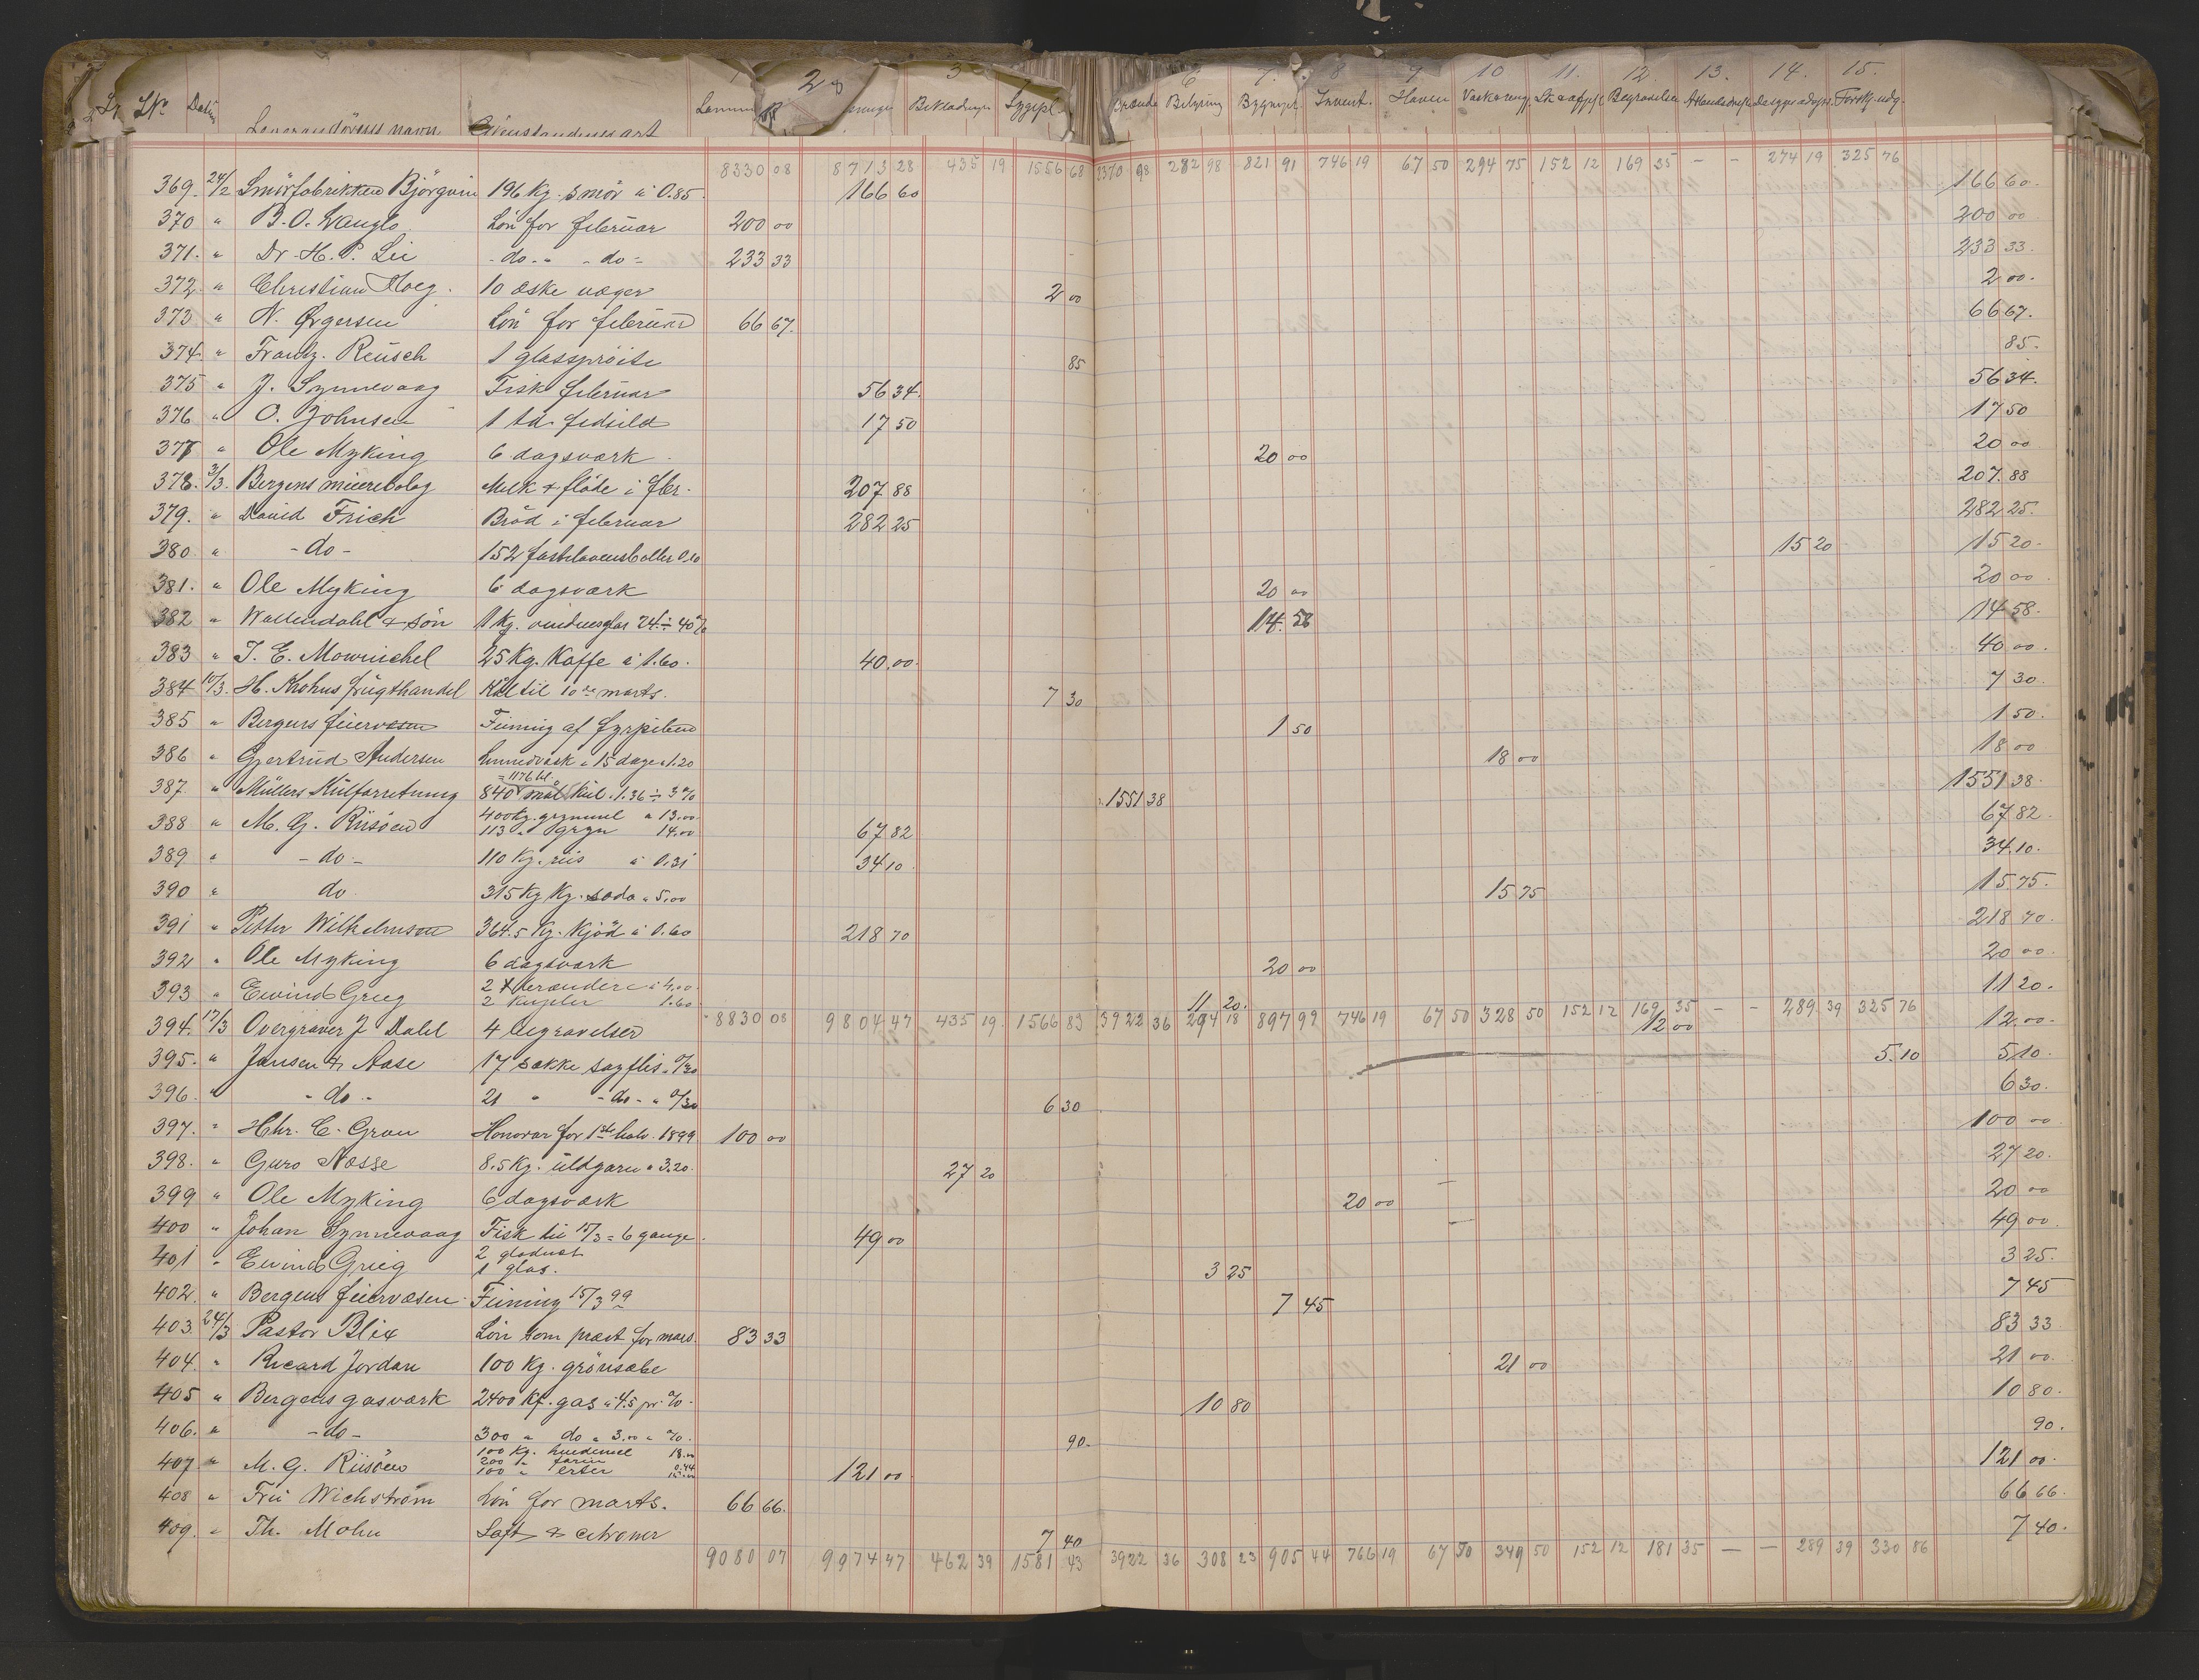 2 3 6 7. 8 9. 10 11. 12. 13. 14. 15.
LNo Datum Leverandörens navn Gjenstandens art Beklædning Sygepl. Brænde Belysning Bygnings. Invent. Haven Vask & reng. Sk & afgift Begravelse Forskj. udg.
8330 08 8713 28 435 19 1556 68 2370 98 282 98 821 91 746 19 67 50 294 75 152 12 169 35 - - 274 19 325 76
369. 24/2 Smörfabrikken Björgvin 196 Kg. smör à 0.85. 166 60 166 60.
370 " B. O. Lön for februar 200 00 200 00
371. " Dr. H. P. Lie - do - " - do - 233 33 233 33.
372. " Christian Hoeg. 10 æske væger 2 00 2 00.
373 " N. Ørgersen Lön for februar 66 67. 66 67.
374 " Frantz Reusch 1 glassprøite 85 85.
375 " J. Synnevaag Fisk februar 56 34. 56 34.
376 " O. Johnsen 1 td. fedsild 17 50 17 50
377 " Ole Myking 6 dagsværk 20 00 20 00
378. 3/3. Bergens meieribolag Melk & flöde i fbr. 207 88 207. 88
379. " David Frich Bröd i februar 282 25 282 25.
380 " - do - 152 fastelavensboller 0.10 15 20 15 20.
381. " Ole Myking 6 dagsværk 20 00 20 00
382 " Wallendahl & sön 1 Kg. vinduesglas 24 ÷ 40% 14. 58 14 58.
383 " J. E. Mowinckel 25 Kg. Kaffe à 1.60. 40. 00. 40 00.
384 10/3. H. Krohns frugthandel Kål til 10de marts. 7 30 7 30.
385 " Bergens feiervæsen Feining af fyrpiben 1 50 1 50.
386 " Gjertrud Andersen Linnedvask i 15 dage à 1.20 18 00 18 00
387. " Müllers Kulforretning = 1176 hl. 840 mål kul à 1.36 ÷ 3% 1551 38 1551 38.
388 " M. G. Riisöen 400 Kg. grynmel à 13.00. 67 82 67 82.
113 " gryn 14.00
389. " - do - 110 Kg. riis à 0.31 34 10. 34. 10.
390 " do 315 Kg Kg. soda à 5.00 15 75 15 75.
391 " Petter Wilhelmsen 364.5 Kg. Kjöd à 0.60 218 70 218 70.
392 " Ole Myking 6 dagsværk 20 00 20 00.
393 " Eivind Grieg 2 à 4.00. 11 20. 11 20.
2 kupler 1.60.
8830 08 9804 47 435 19. 1566 83 3922 36 294 18 897 99 746 19 67 50 328 50 152 12 169 35 - - 289. 39 325 76
394. 17/3 Overgraver J Dahl 4 begravelser 12 00 12 00.
395. " Jansen & Aase 17 sække sagflis à 0/30 5. 10 5 10.
396. " - do - 21 " - do - " 0/30 6 30 6 30.
397. " Chr. C. Gran Honorar for 1ste halv. 1899 100 00 100 00
398. " Guro Nesse 8.5 Kg. uldgarn à 3.20. 27 20 27 20.
399 " Ole Myking 6 dagsværk 20 00 20 00
400 " Johan Synnevaag Fisk til 15/3 = 6 gange. 49 00 49 00.
401 " Eivind Grieg 2 3 25 3 25.
1 glas.
402. " Bergens feiervæsen Feining 15/3 99 7 45 7 45
403 24/3 Pastor Blix Lön som præst for mars. 83 33 83 33
404. " Ricard Jordan 100 Kg. grönsæbe 21 00 21 00.
405 " Bergens gasværk 2400 Kf. gas à 4.5 pr. % 10 80 10 80.
406. " - do - 300 " do à 3.00 " % 90. 90.
407 " M. G. Riisöen 100 Kg. hvedemel 18.00 121 00 121 00.
200 " farin 0.44
100 " erter 15.00
408 " Fru Wichström Lön for marts. 66 66. 66 66.
409. " Th. Mohn Saft & citroner 7 40 7 40.
9080 07 9974 47 462 39 1581 43 3922 36 308 23 905 44 766 19 67 50 349 50 152 12 181 35 - - 289 39 330 86